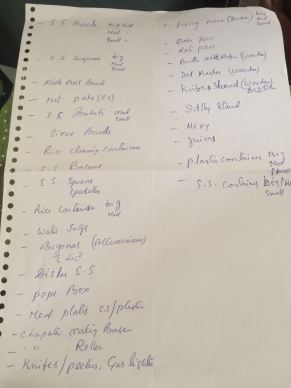 - S.S Bowls big
Med
Small
- S.S Saepans big
Med
Small
- Milk
- Hot plate (S.S)
- S.S Buckets Med
Small
- Sieve Bowls
- Rice cleaning Containers
- S.S Basens
- S.S. Spoons
Spatulas
- Rice Container big
Med
- Water Jugs
- (Alluminium)
c Lid
- Dishes S.S
- Box
- Meal plates S.S/plastic
- Chapatti Base
- " Roller
- Knifes/peeler, Gas lighter
- Frying pans big
Med
Small
- Dosa pan
- Roti pan
- (wooden)
- Dal Masher (wooden)
- Knifes stand (Wooden)
- Idlly Stand
- Mixy
- Juicers
- plastic containers Big
Med
Small
- S.S. Contains Big/Med
Small